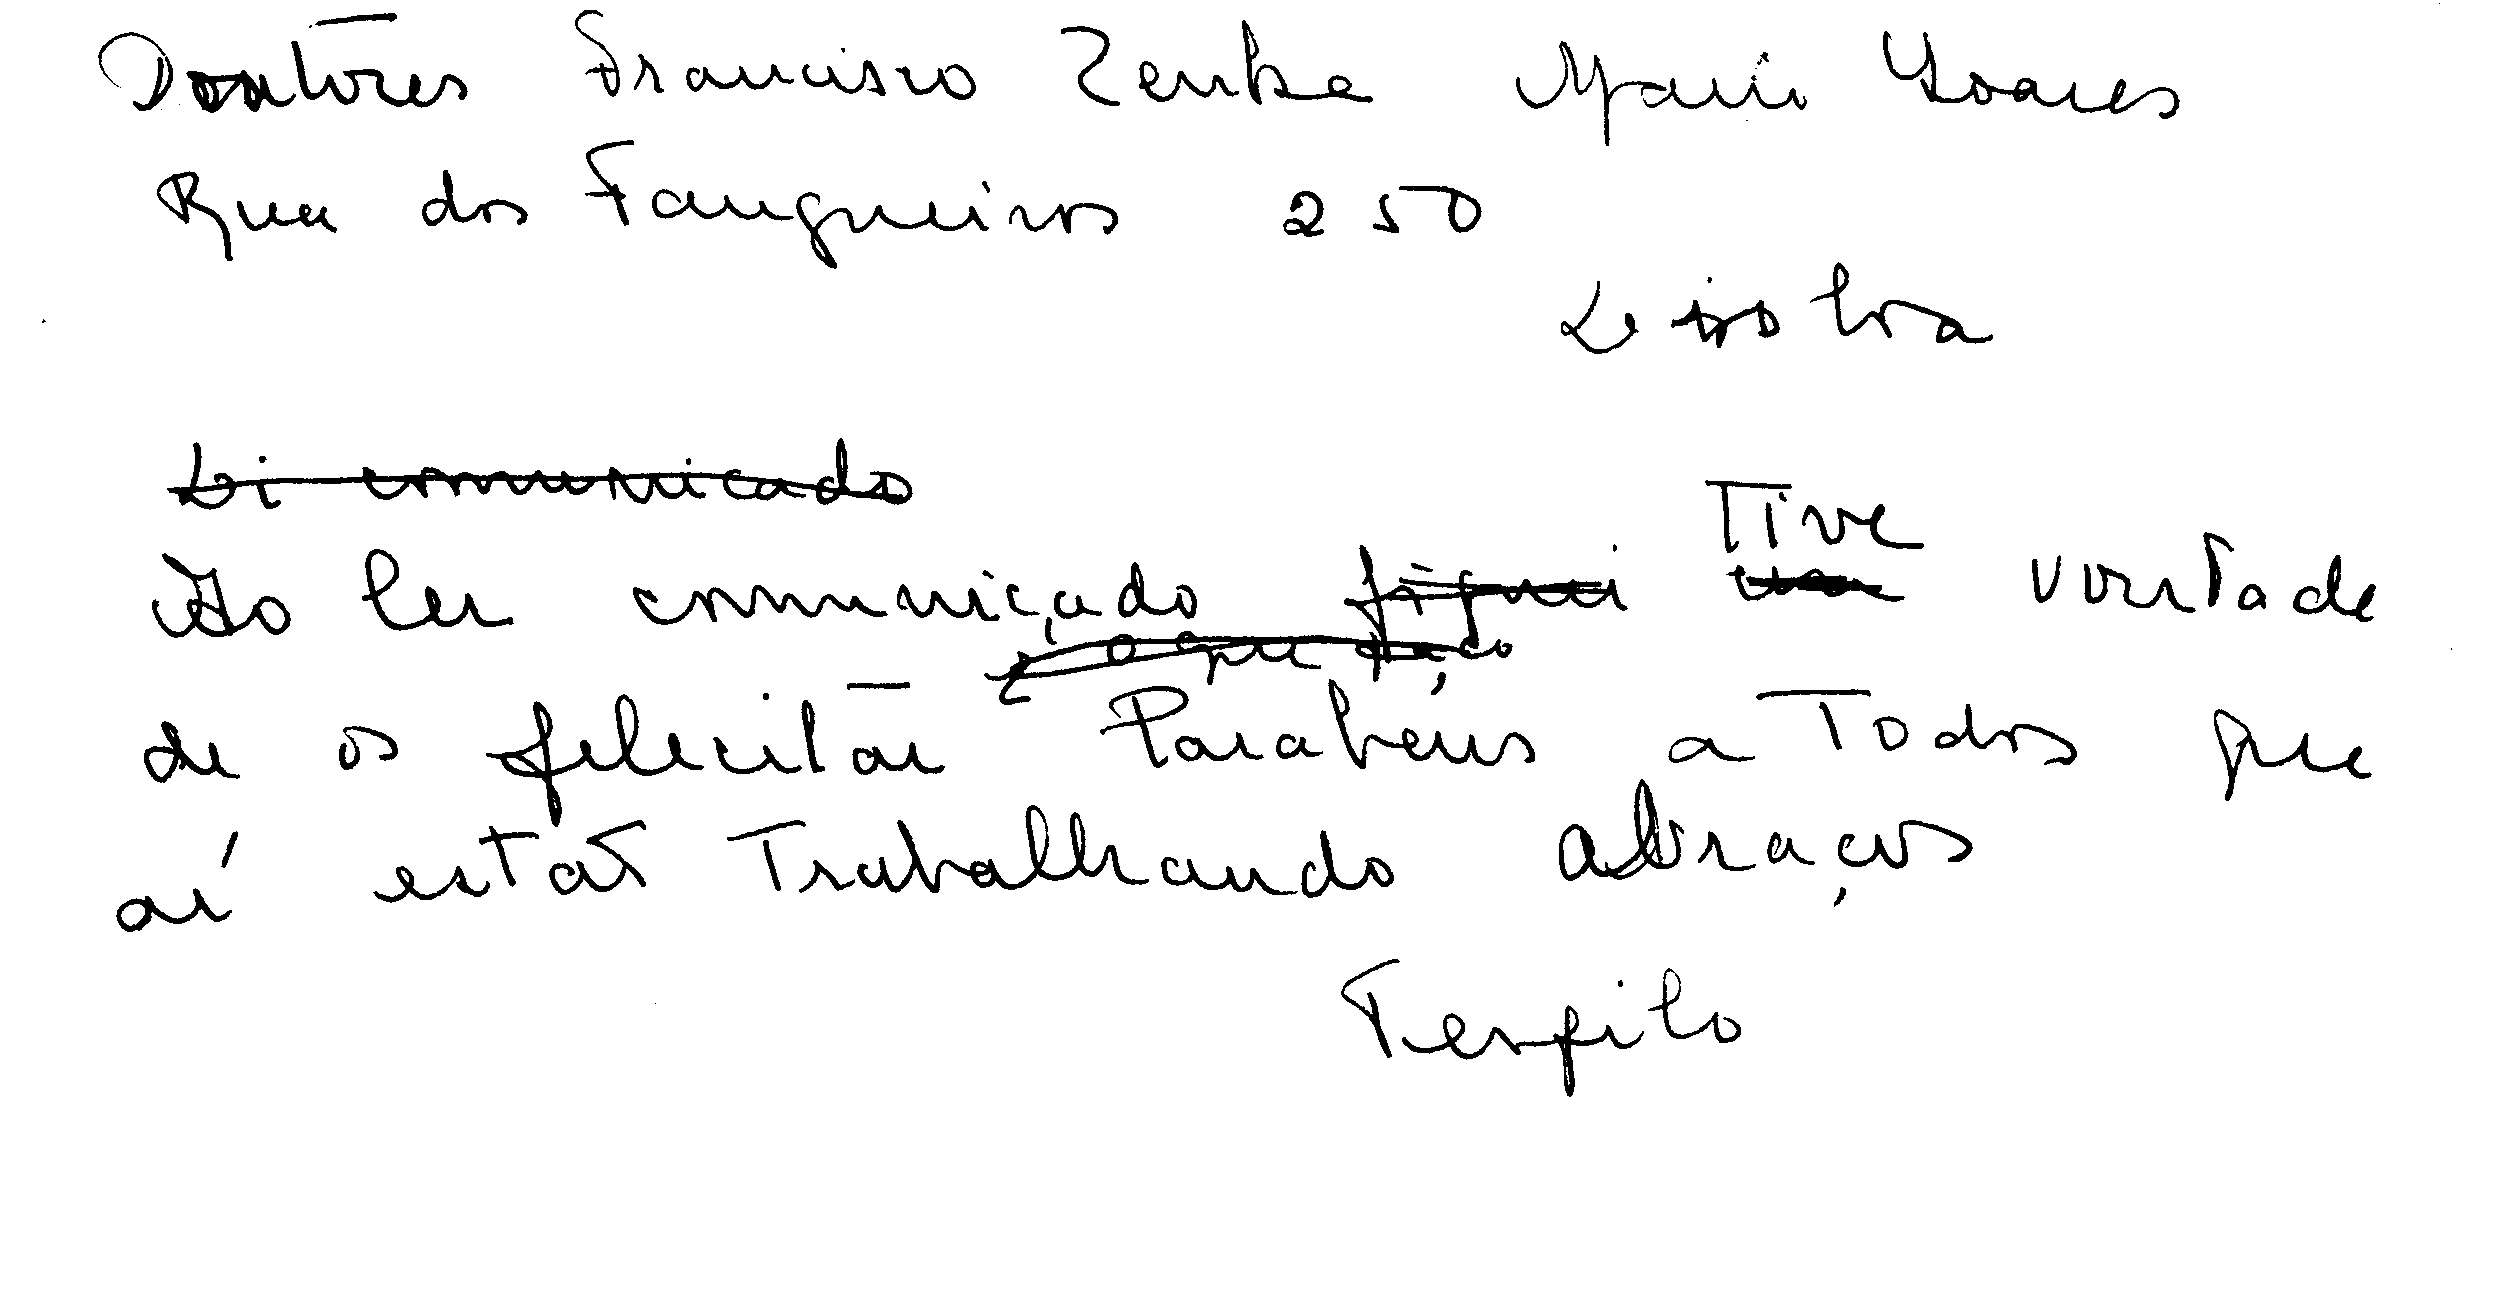 Doutores Francisco Zenha Mario Soares
Rua dos Fanqueiros 250
Lisboa
Li comunicado
Tive
Ao ler comunicado fiquei vontade
o que faço
de os felicitar Parabéns a Todos que
aí estão Trabalhando Abraços
Teofilo